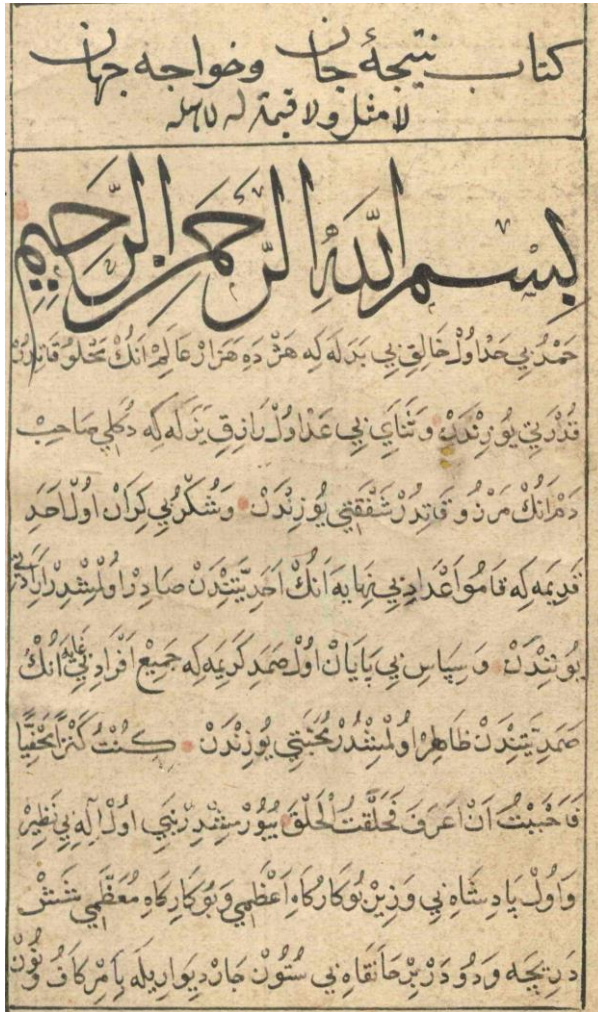 كتاب نتيجۀ جان وخواجه جهان
لا مثل ولا قيمة له
بِسْمِ اللّٰهِ الرَّحْمٰنِ الرَّحِيمِ
حَمْدُ بِي حَدْ اُولْ خَالِقِ بِي بَدَلَه كِه هَژْدَه هَزَارْ عَالَمْ اَنُكْ مَخْلُوقَاتِدُرْ
قُدْرَتِي يُوزِنْدَنْ وَثَنَايِ بِي عَدْ اُولْ رَازِقِ يَزَلَه كِه دُكَلِي صَاحِبْ
دَمْ اَنُكْ مَرْزُوقَاتِدُرْ شَفْقَتِي يُوزِنْدَنْ وَشُكْرُ بِي كِرَانْ اُولْ اَحَدِ
قَدِيمَه كِه قَامُو اَعْدَادِ بِي نِهَايَه اَنُكْ اَحَدِيَّتِنْدَنْ صَادِرْ اُولْمِشْدِرْ اِرَادَتِي
يُوزِنْدَنْ وَسِپَاسِ بِي پَايَانْ اُولْ صَمَدِ كَرِيمَه كِه جَمِيعْ اَفْرَادِ بِي غَايَه اَنُكْ
صَمَدِيَّتِنْدَنْ ظَاهِرْ اُولْمِشْدُرْ مُحَبَّتِي يُوزِنْدَنْ كُنْتُ كَنْزًا مَخْفِيًّا
فَاَحْبَبْتُ اَنْ اُعْرَفَ فَخَلَقْتُ الْخَلْقَ بُيُورْمِشْدِرْ نَبِي اُولْ اِلٰهِ بِي نَظِيرْ
وَاُولْ پَادِشَاهِ بِي وَزِيرْ بُو كَارْكَاهِ اَعْظَمِي وَبُو كَارِكَاهِ مُعَظَّمِي شَشْ
دَرِيچَه وَدُو دَرْ بِرْ خَانَقَاهِ بِي سُتُونْ چَارْ دِيوَارِيلَه بِاَمْرِ كَافُ وَنُونْ